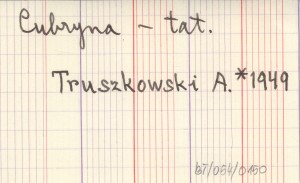 Cubryna – tat.
Truszkowski A. *1949
BT/054/0150